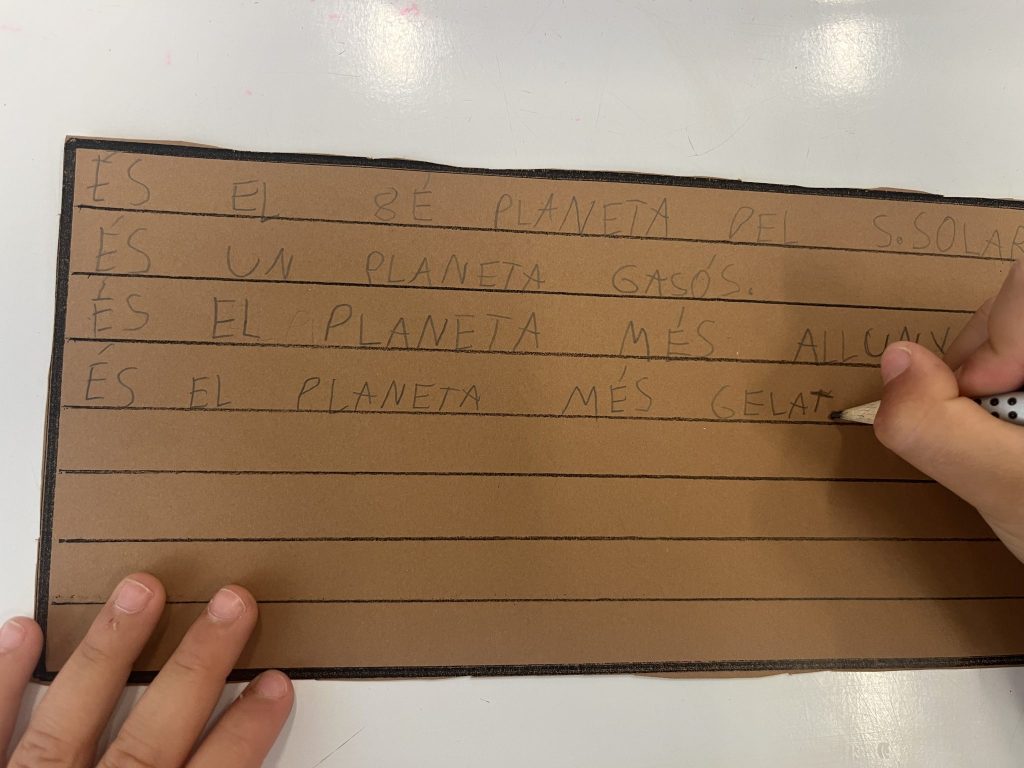 ÉS EL 8É PLANETA DEL S.SOLAR
ÉS UN PLANETA GASÓS.
ÉS EL PLANETA MÉS ALLUNY
ÉS EL PLANETA MÉS GELAT